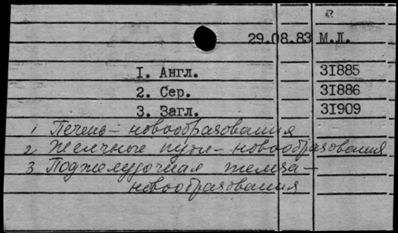 29.08.83 М.Л.
1. Англ. 31885
2. Сер. 31886
3. Загл. 31909
1. Печень – новообразования
2. Желчные пути – новообразования
3. Поджелудочная железа –
новообразования